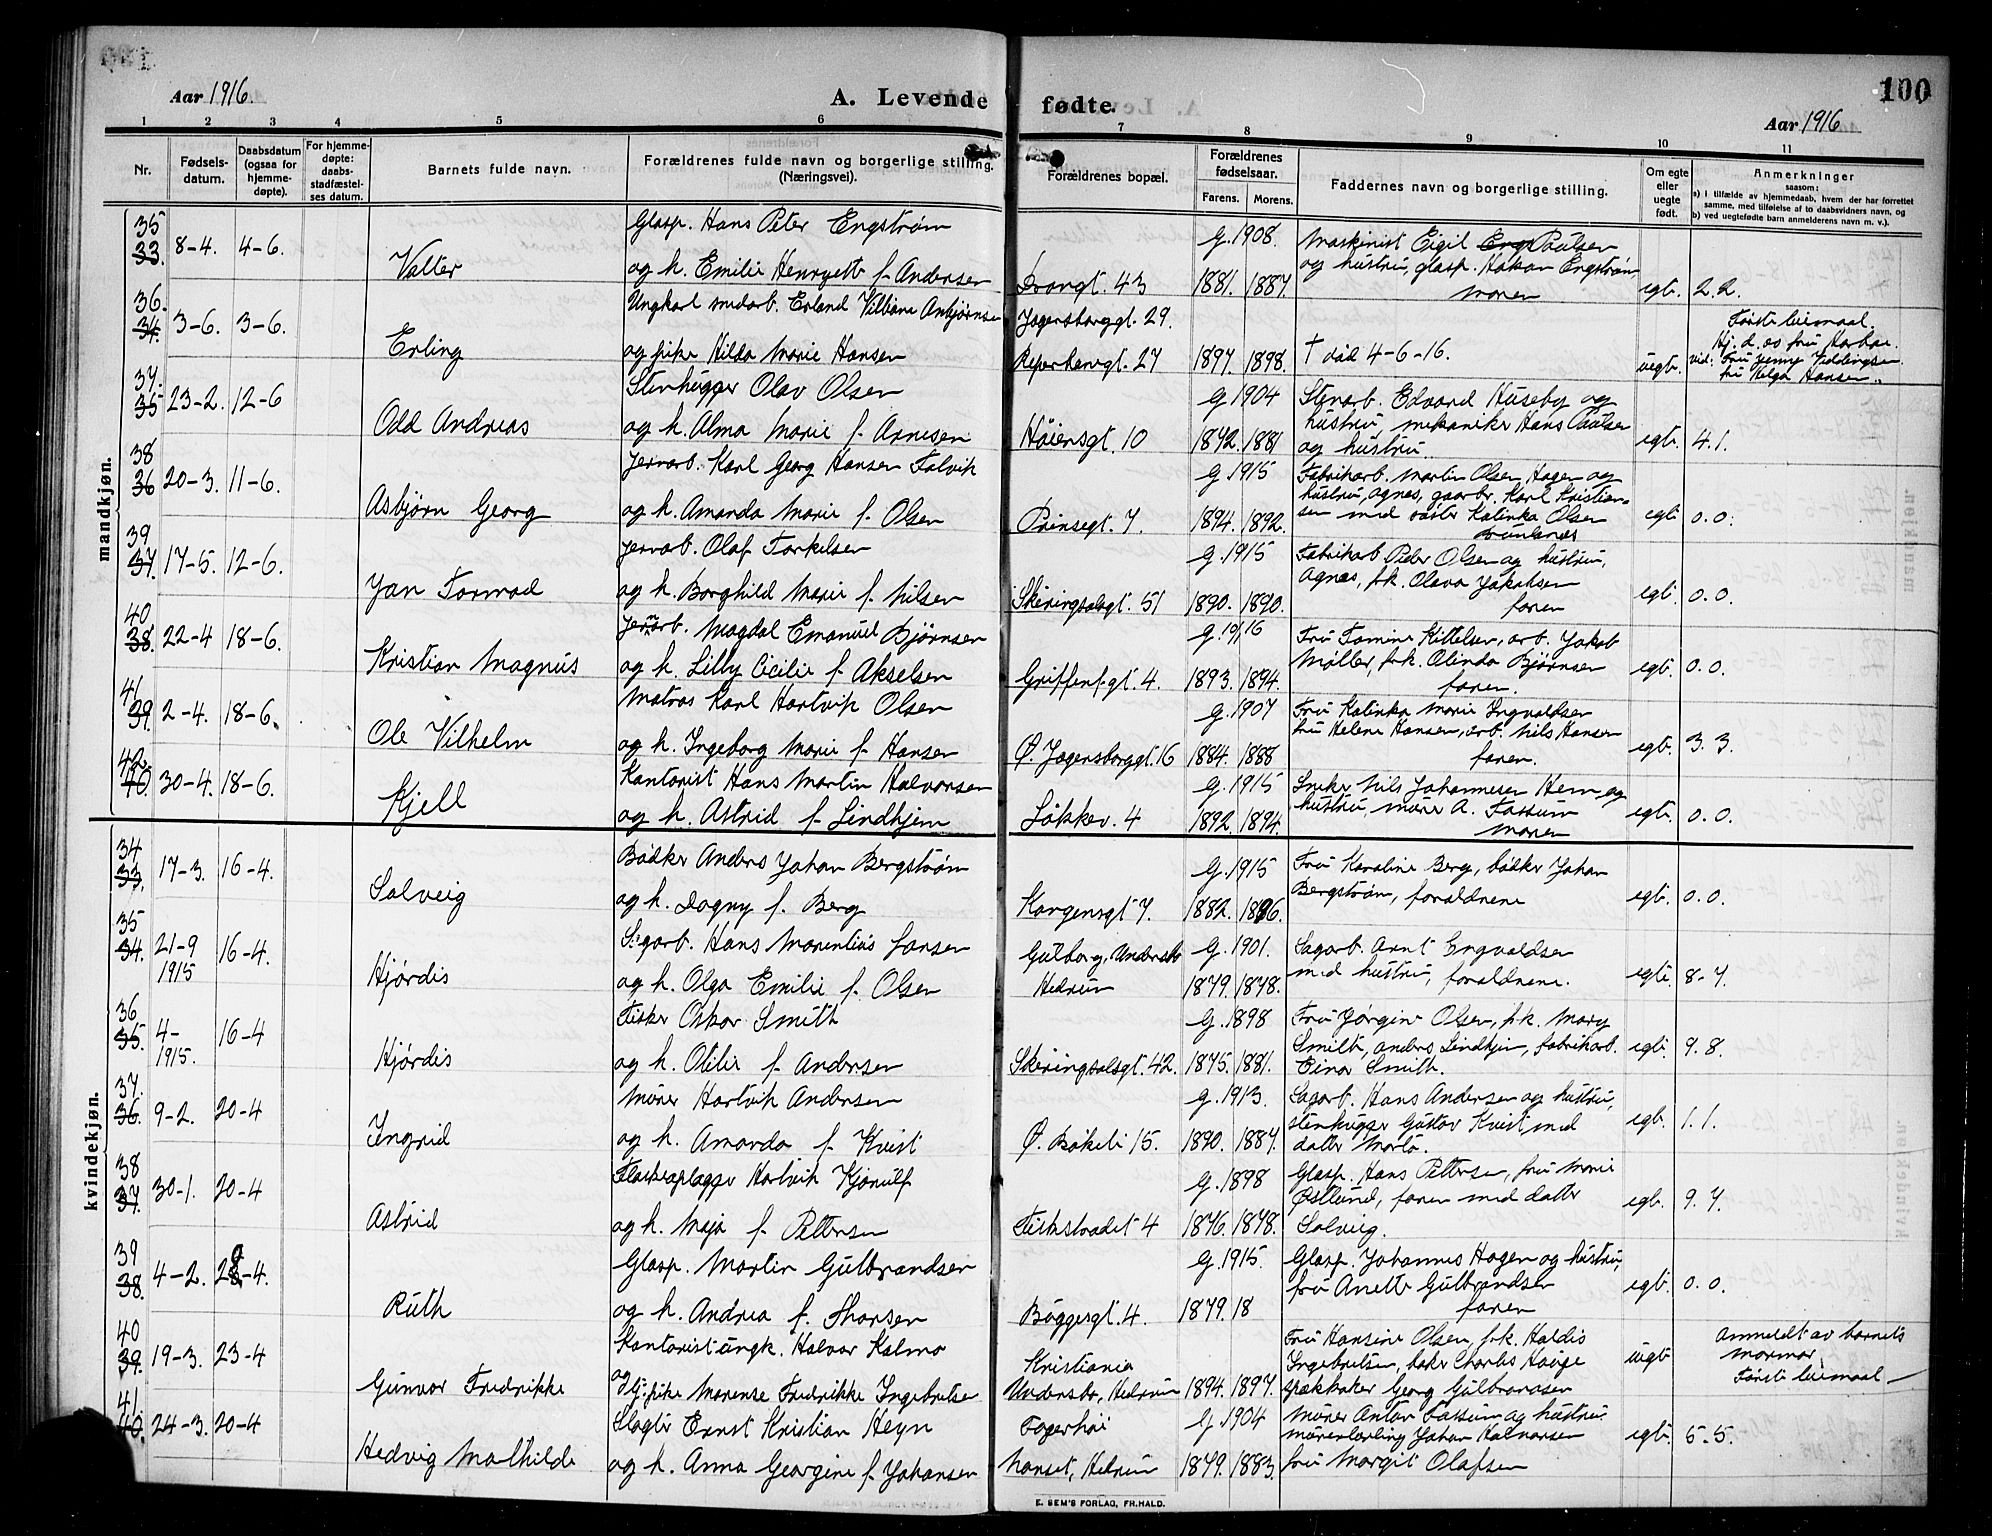 100
Aar 1916.
A. Levende fødte.
Aar 1916
1 2 3 4 5 6 7 8 9 10 11
Nr. Fødsels-datum. Daabsdatum (ogsaa for hjemme-døpte). For hjemme-døpte: daabs-stadfæstel-ses datum. Barnets fulde navn. Forældrenes fulde navn og borgerlige stilling. (Næringsvei). Forældrenes bopæl. Forældrenes fødselsaar. Farens. Morens. Faddernes navn og borgerlige stilling. Om egte eller uegte født. Anmerkninger saasom: a) i tilfælde av hjemmedaab, hvem der har forrettet samme, med tilføielse af to daabsvidners navn, og b) ved uegtefødte barn anmelderens navn m. v.).
mandkjøn.
35 Glasp. Hans Peter Engstrøm g. 1908. Maskinist Eigil Paulsen
33. 8-4. 4-6. Valter og h. Emilie Henryette f. Andersen 43 1881. 1887. og hustru, glasp. Håkan Engstrøm, moren egt. 2.2.
36. Ungkarl Erland Asbjørnsen Jegersborggt. 29. Første leiemaal.
34. 3-6. 3-6. Erling og pike Hilda Marie Hansen Reperbangt. 27 1897. 1898. † død 4-6-16. uegt. Hj. d. av fru
vid: Fru Jenny
fru Helga Hansen.
37. Stenhugger Olav Olsen g. 1904 Stenarb. Edvard Huseby og
35 23-2. 12-6 Odd Andreas og h. Alma Marie f. Arnesen Høiensgt. 10 1872. 1881 hustru, mekaniker Hans Paulsen og hustru. egt. 4.1.
38 Jernarb. Karl Georg Hansen Falvik g. 1915 Fabrikarb. Martin Olsen Hagen og
36 20-3. 11-6. Asbjørn Georg og h. Amanda Marie f. Olsen Prinsegt. 7. 1894. 1892. hustru, Agnes, Karl Kristian-
sen med søster Kalinka Olsen egt 0.0.
39 Jernarb. Olaf Torkelsen g. 1915 Fabrikarb Peder Olsen og hustru,
37. 17-5. 12-6. Jan Tormod og h. Borghild Marie f. Nilsen Skiringsalsgt. 51 1890. 1890. Agnes, frk. Olava Jakobsen faren egt. 0.0.
40 Jernarb. Magdal Emanuel Bjørnsen g. 1916 Fru Tomine Kittelsen, arb. Jakob
38. 22-4 18-6. Kristian Magnus og h. Lilly Cicilie f. Akselsen Griffenf.gt. 4. 1893. 1894. Møller, frk. Olinda Bjørnsen faren. egt. 0.0.
41 Matros Karl Hartvik Olsen g. 1907 Fru Kalinka Marie Ingvaldsen
39. 2-4. 18-6. Ole Vilhelm og h. Ingeborg Marie f. Hansen Ø. Jegersborggt. 16 1884. 1888 fru Helene Hansen, arb. Nils Hansen faren. egt. 3.3.
42. Kontorist Hans Martin Halvorsen g. 1915 Snekr Nils Johannesen Hem og
40. 30-4. 18-6. Kjell og h. Astrid f. Lindhjem Løkkev. 4 1892. 1894. hustru, A. Fossum moren egt. 0.0.
kvindekjøn.
34 Bødker Anders Johan Bergstrøm g. 1915 Fru Karoline Berg, bødker Johan
33. 17-3. 16-4. Solveig og h. Dagny f. Berg Kongensgt 7. 1882. 1896. Bergstrøm, forældrene egt. 0.0.
35 Sagarb. Hans Marentius Jansen Gulborg, Undersbo g. 1901. Sagarb. Arnt Engvaldsen
34. 21-9 1915 16-4. Hjørdis og h. Olga Emilie f. Olsen Hedrum 1879. 1878. med hustru, forældrene. egte. 8-7.
36 Fisker Oskar Smith g. 1898 Fru Jørgine Olsen, frk. Mary
35. 4- 1915. 16-4 Hjørdis og h. Otilie f. Andersen Skiringsalsgt. 42. 1875. 1881. Smith, Anders Lindhjem, fabrikarb. Einar Smith. egt. 9.8.
37. Murer Hartvik Andersen g. 1913. Sagarb. Hans Andersen og hustru,
36. 9-2. 20-4 Ingrid og h. Amanda f. Kvist Ø. Bøkeli 15. 1890. 1887. stenhugger Gustav Kvist med datter Marta. egt. 1.1.
38 Hartvik Kjønulf g. 1898 Glasp. Hans Pettersen, fru Marie
37. 30-1. 20-4 Astrid og h. Maja f. Pettersen 4 1876. 1878. Østlund, faren med datter Solveig. egt. 9.7.
39 Glasp. Martin Gulbrandsen g. 1915. Glasp. Johannes Hagen og hustru,
38. 4-2. 28-4. Ruth og h. Andrea f. Thorsen Bøggesgt. 4. 1879. 18 fru Anette Gulbrandsen faren egt. 0.0.
40 Kontorist ungk. Halvor Kalmo Kristiania Fru Hansine Olsen, frk. Haldis Anmeldt av barnets
39. 19-3. 23-4 Gunvor Fredrikke og tj. pike Marense Fredrikke Ingebretsen Undersbo, Hedrum 1894. 1897. Ingebretsen, baker Charles Hauge Georg Gulbrandsen uegt mormor. Første leiemaal
41. Slagter Ernst Kristian Heyn Fagerhøi g. 1904 Murer Anton Fossum og hustru
40. 24-3. 20-4 Hedvig Mathilde og h. Anna Georgine f. Johansen Nanset, Hedrum 1879. 1883. murerlærling Johan Halvorsen fru Margit Olafsen egt. 5-5.
E. SEM'S FORLAG, FR.HALD.